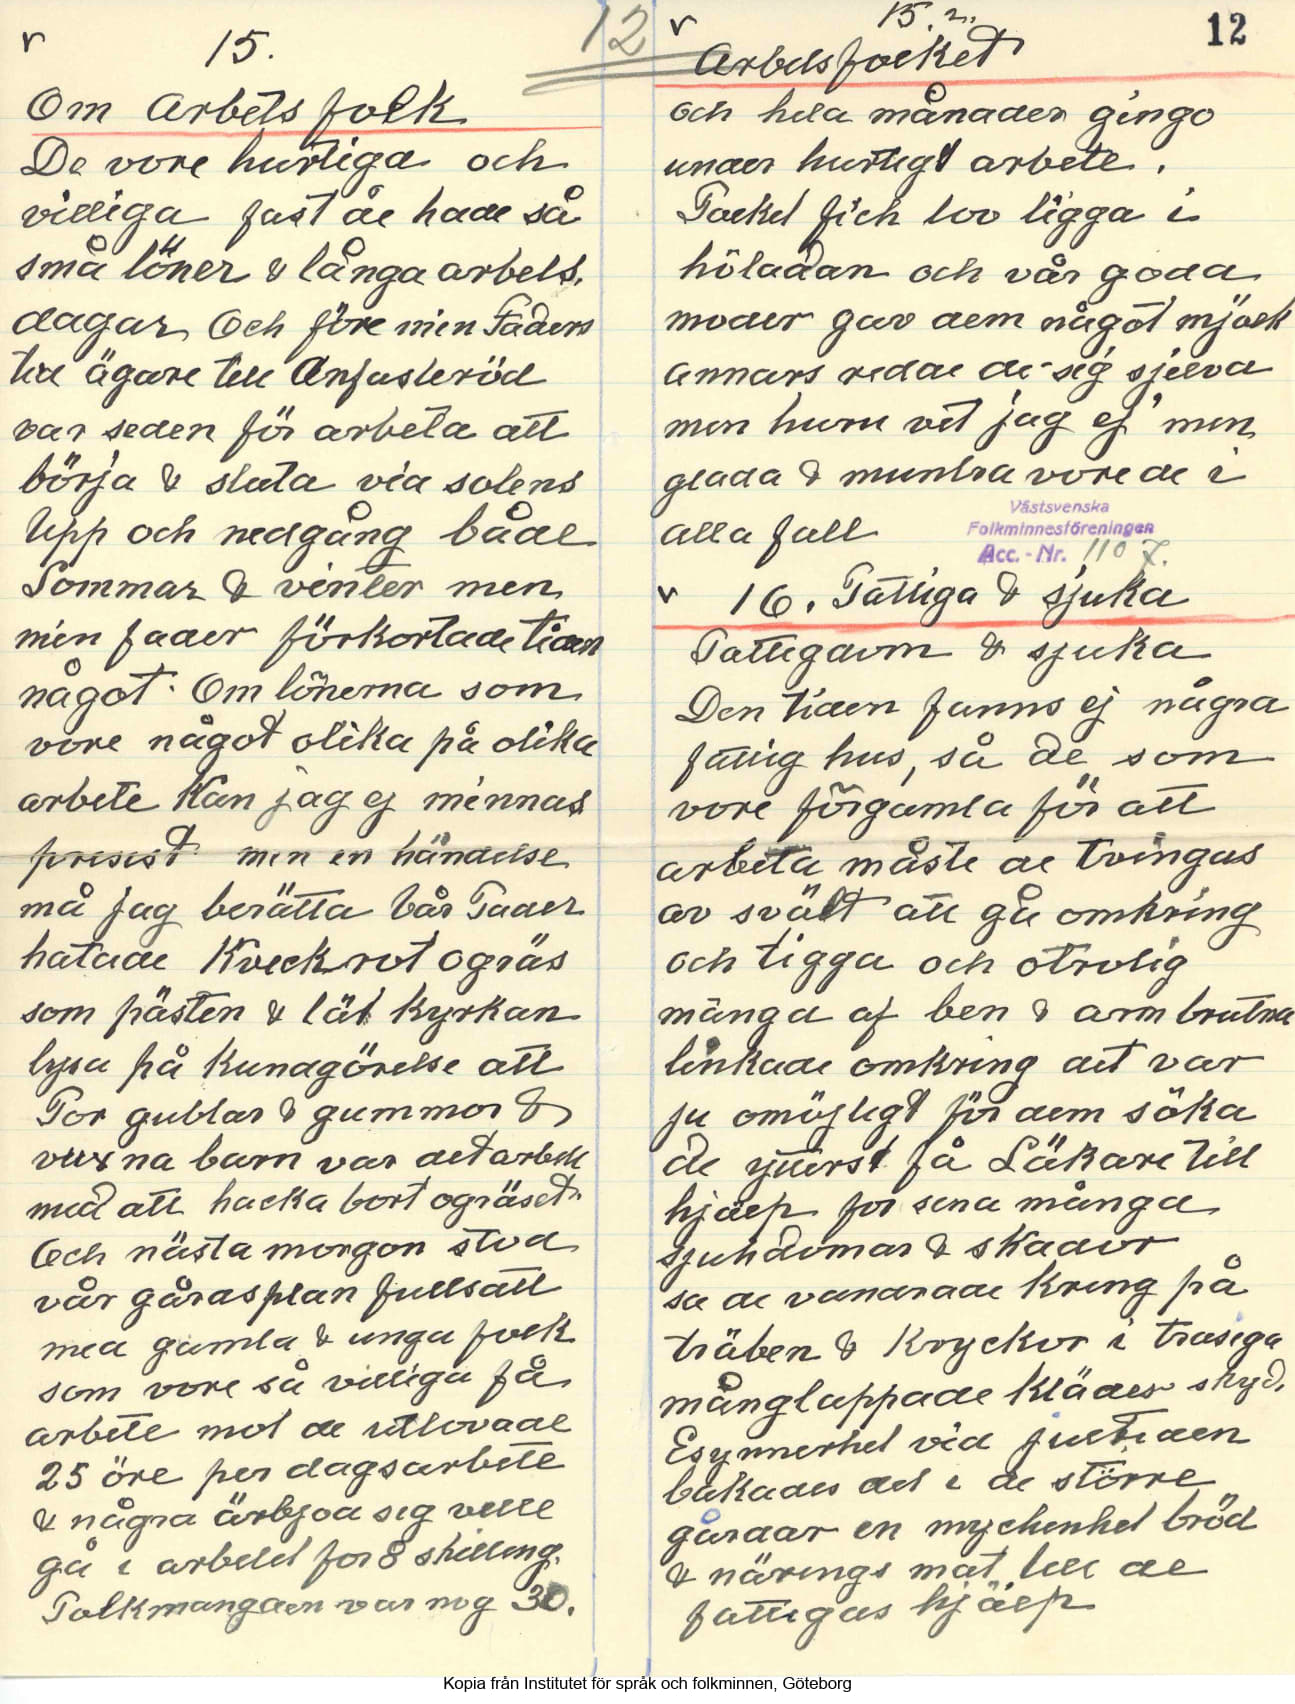 v 15.
Om Arbets folk
De vore hurtiga och
villiga fast de hade så
små löner & långa arbets.
dagar. Och före min Faders
tid ägare till Anfasteröd
var seden för arbeta att
börja & sluta vid solens
Upp och nedgång både
Sommar & vinter men
min fader förkortade tiden
något. Om lönerna som
vore något olika på olika
arbete Kan jag ej minnas
presist men en händelse
må jag berätta Vår Fader
hatade Kveckrot ogräs
som pästen & lät Kyrkan
lysa på Kundgörelse att
For gubbar & gummor &
vuxna barn var det arbete
med att hacka bort ogräset.
Och nästa morgon stod
vår gårdsplan fullsatt
med gamla & unga folk
som vore så villiga få
arbete mot de utlovade
25 öre per dagsarbete
& några ärbjöd sig ville
gå i arbetet for 8 skilling.
Folkmängden var nog 30.
12
v 15.2. 12
Arbetsfolket
och hela månader gingo
under hurtigt arbete.
Focket fick lov ligga i
höladan och vår goda
moder gav dem något mjölk
annars redde de sig sjelva
men huru vet jag ej men
glada & muntra vore de i
alla fall
Västsvenska
Folkminnesföreningen
Acc. - Nr. 110 7.
v 16. Fattiga & sjuka
Fattigdom & sjuka
Den tiden fanns ej några
fattig hus, så de som
vore förgamla för att
arbeta måste de tvingas
av svält att gå omkring
och tigga och otrolig
många af ben & arm brutna
linkade omkring det var
ju omöjligt för dem söka
de ytterst få Läkare till
hjälp for sina många
sjukdomar & skador
så de vandrade kring på
träben & Kryckor i trasiga
månglappade Kläder skyd.
Esynnerhet vid jultiden
bakades det i de större
gårdar en myckenhet bröd
& närings mat till de
fattigas hjälp
Kopia från Institutet för språk och folkminnen, Göteborg